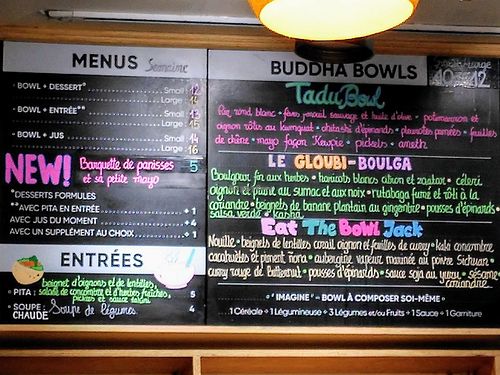 MENUS Semaine
· BOWL + DESSERT* Small 12
Large 14
· BOWL + ENTRÉE** Small 13
Large 15
· BOWL + JUS Small 14
Large 16
NEW! Barquette de panisses 5
et sa petite mayo
*DESSERTS FORMULES
**AVEC PITA EN ENTRÉE + 1
AVEC JUS DU MOMENT + 4
AVEC UN SUPPLÉMENT AU CHOIX + 1
ENTRÉES
beignet d'oignons et de lentilles,
· PITA : salade de concombre et d'herbes fraîches, 5
pickles et sauce tahini
· SOUPE : Soupe de légumes 4
CHAUDE
BUDDHA BOWLS Small Large
10 12
Tadu Bowl
Riz rond blanc · fèves, persil, sauce et huile d'olive · potimarron et
oignon rôtis au kumquat · chitashi d'épinards · pleurotes panées · feuilles
de chêne · mayo façon Kewpie · pickels · aneth
LE GLOUBI-BOULGA
Boulgour fin aux herbes · haricots blancs citron et zaatar · céleri
oignon et prune au sumac et aux noix · rutabaga fumé et rôti à la
coriandre · beignets de banane plantain au gingembre · pousses d'épinards ·
salsa verde · kasha
Eat The Bowl Jack
Nouille · beignets de lentilles corail oignon et feuilles de curry · kaki concombre
cacahuètes et piment · aubergine vapeur marinée au poivre Sichuan ·
curry rouge de Butternut · pousses d'épinards · sauce soja au yuzu · sésame
coriandre
" IMAGINE " – BOWL À COMPOSER SOI-MÊME *
· 1 Céréale · 1 Légumineuse · 3 Légumes et/ou Fruits · 1 Sauce · 1 Garniture